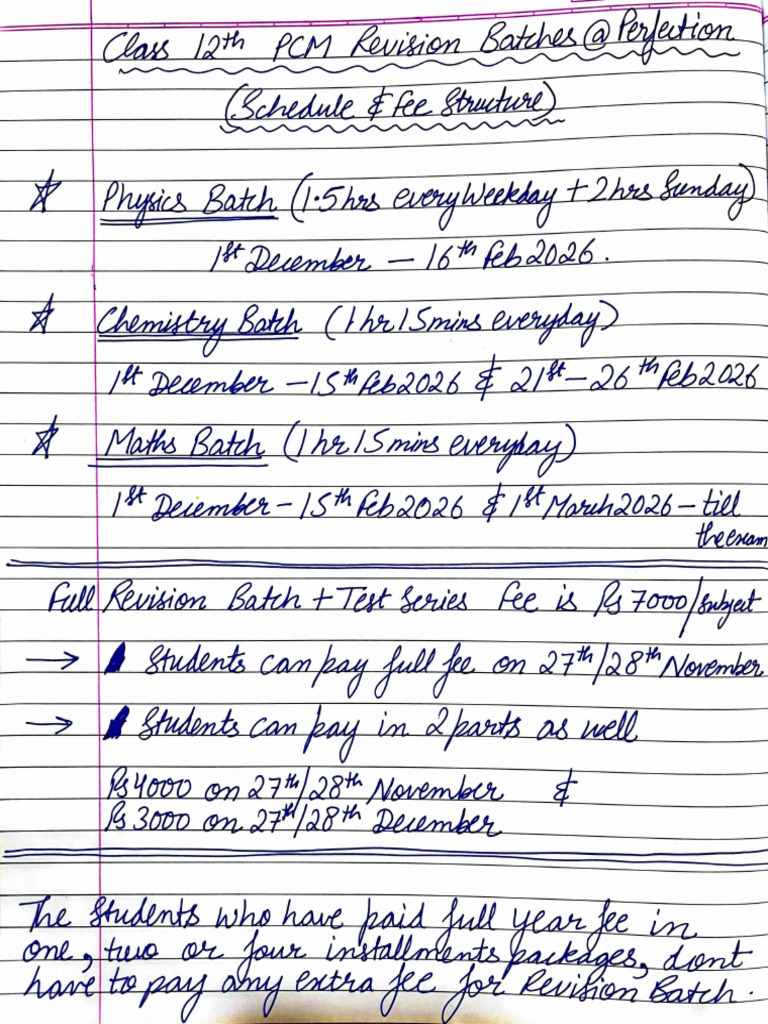 Class 12th PCM Revision Batches @ Perfection
(Schedule & Fee Structure)
☆ Physics Batch (1.5hrs every Weekday + 2hrs Sunday)
1st December – 16th Feb 2026.
☆ Chemistry Batch (1hr 15mins everyday)
1st December – 15th Feb 2026 & 21st – 26th Feb 2026
☆ Maths Batch (1hr 15mins everyday)
1st December – 15th Feb 2026 & 1st March 2026 – till
the exam
Full Revision Batch + Test Series Fee is Rs 7000/subject
→ Students can pay full fee on 27th/28th November
→ Students can pay in 2 parts as well
Rs 4000 on 27th/28th November &
Rs 3000 on 27th/28th December
The Students who have paid full year fee in
one, two or four installments packages, dont
have to pay any extra fee for Revision Batch.